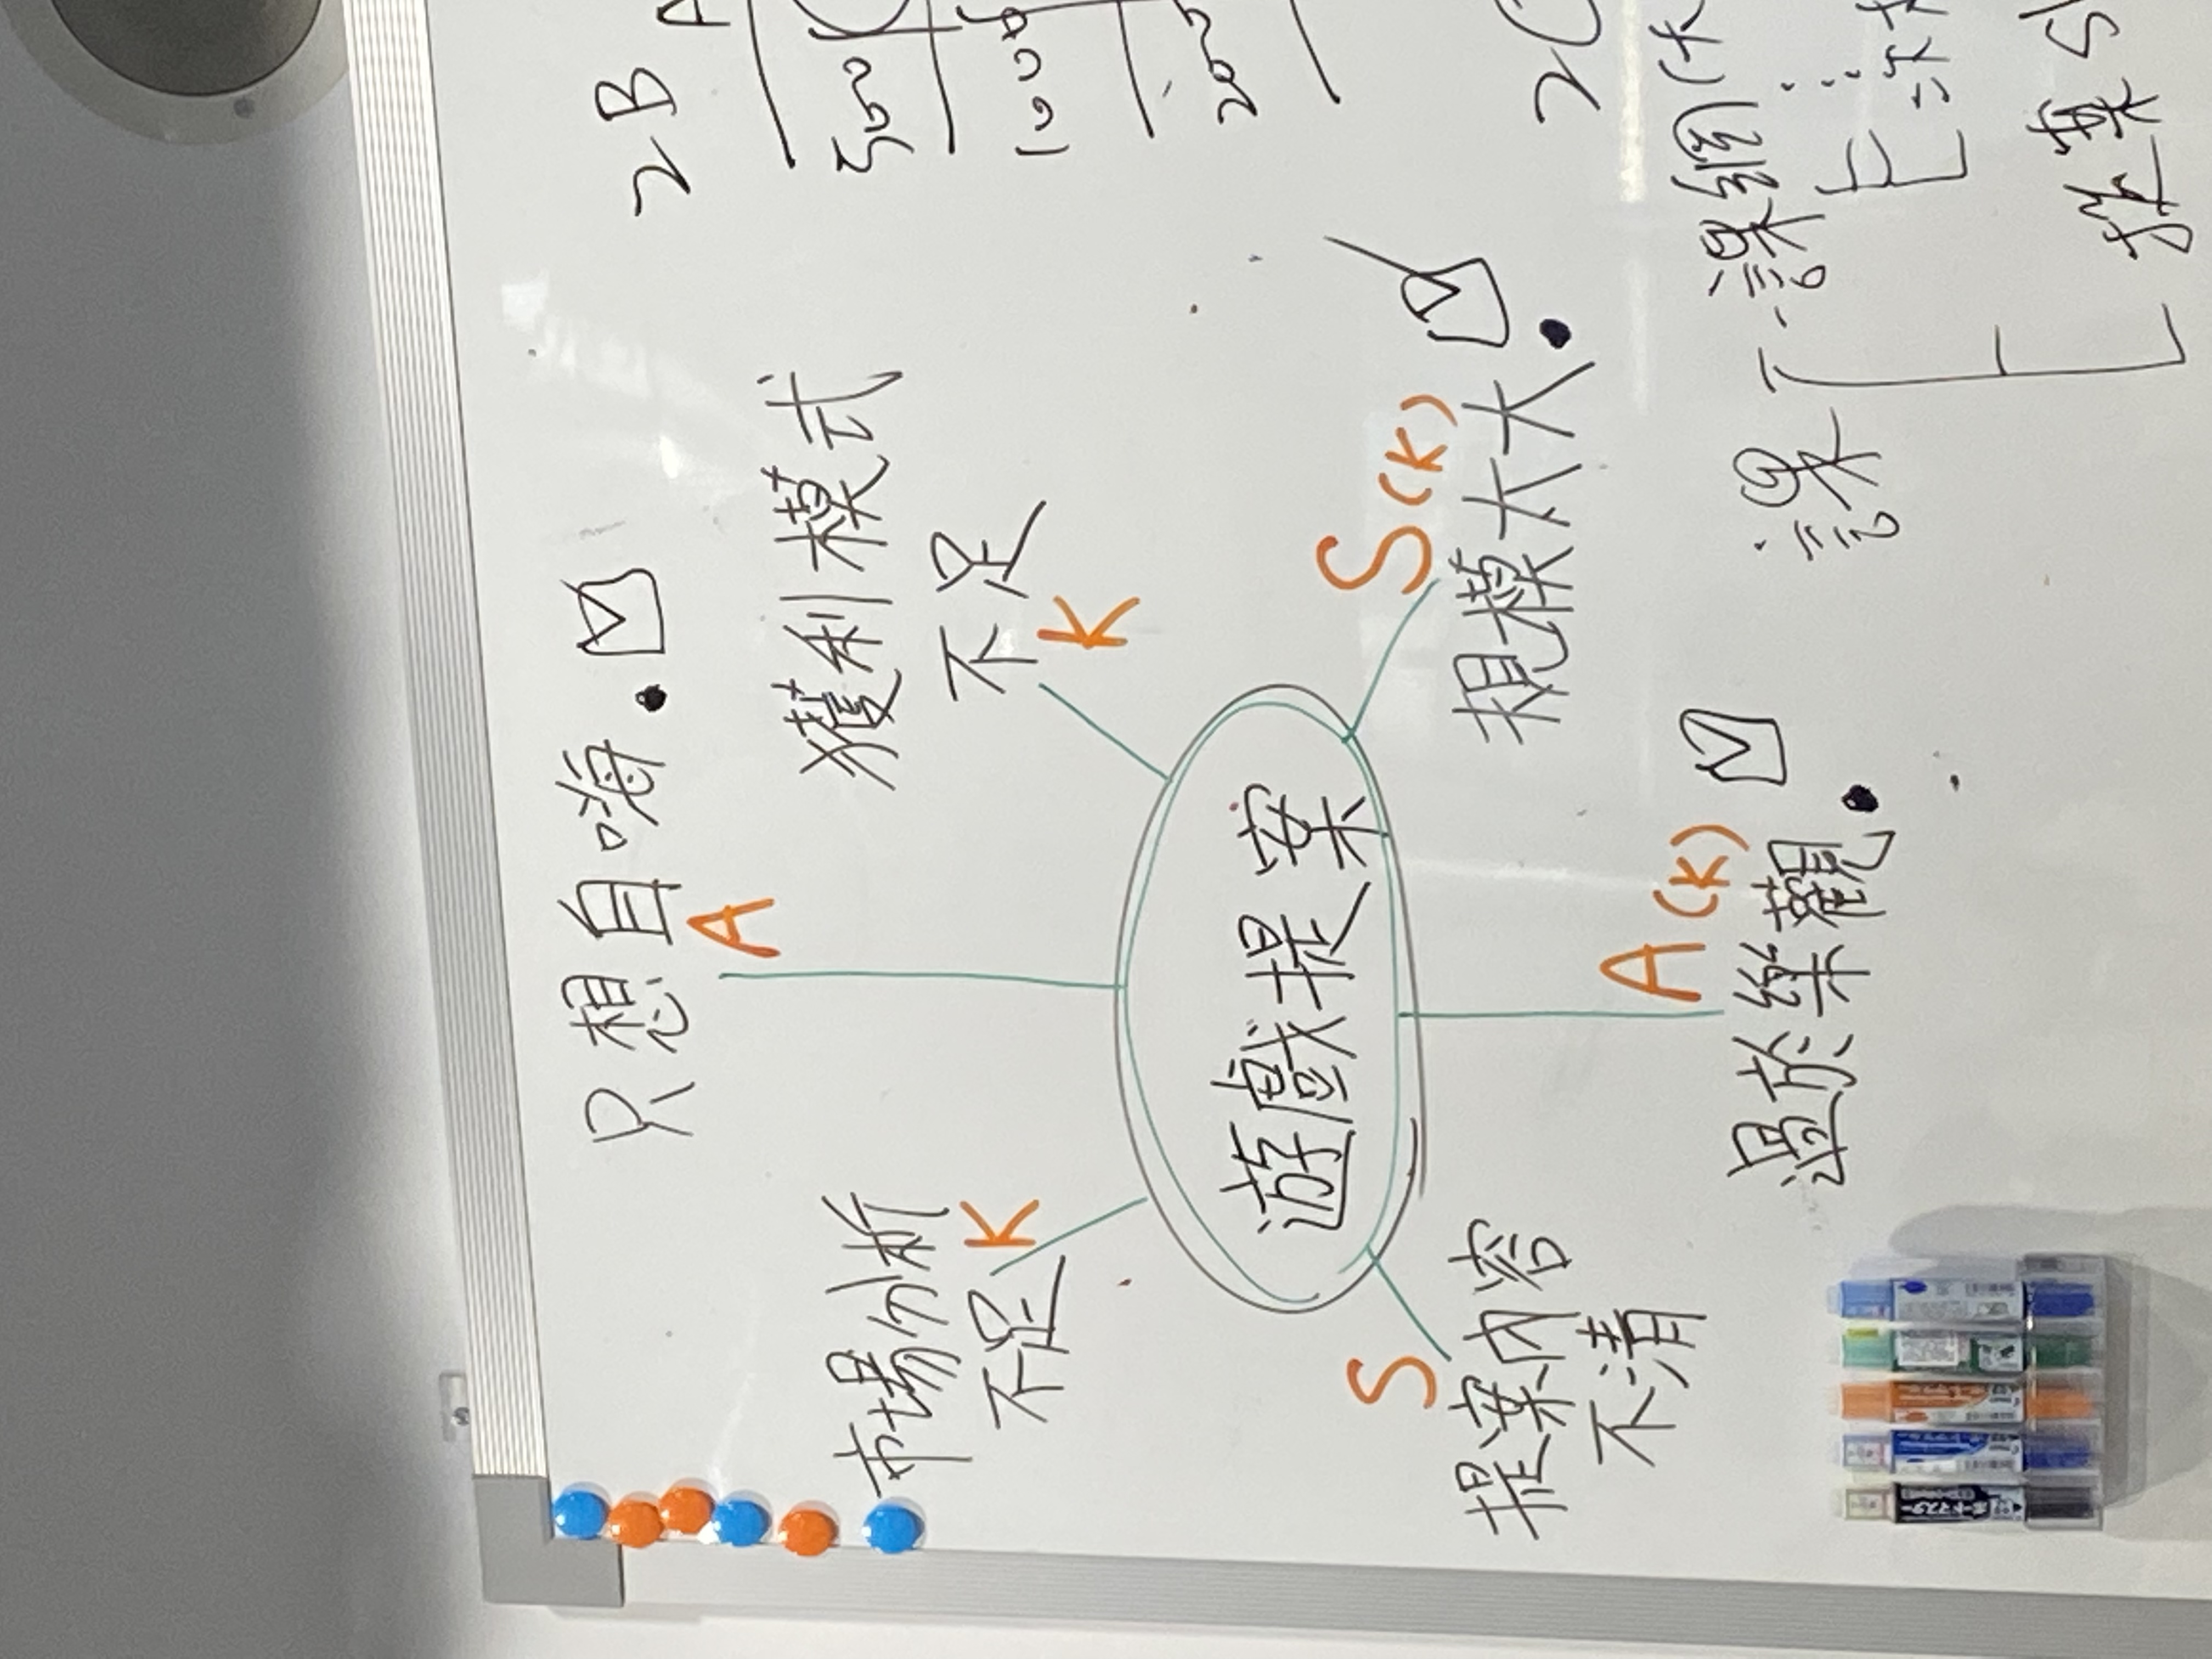 只想自嗨.
A
市場分析
不足
K
獲利模式
不足
K
遊戲提案
S
提案內容
不清
A(K)
過於樂觀.
S(K)
規模太大.
2B
A
500
1000
2000
課
課綱(大
提案S